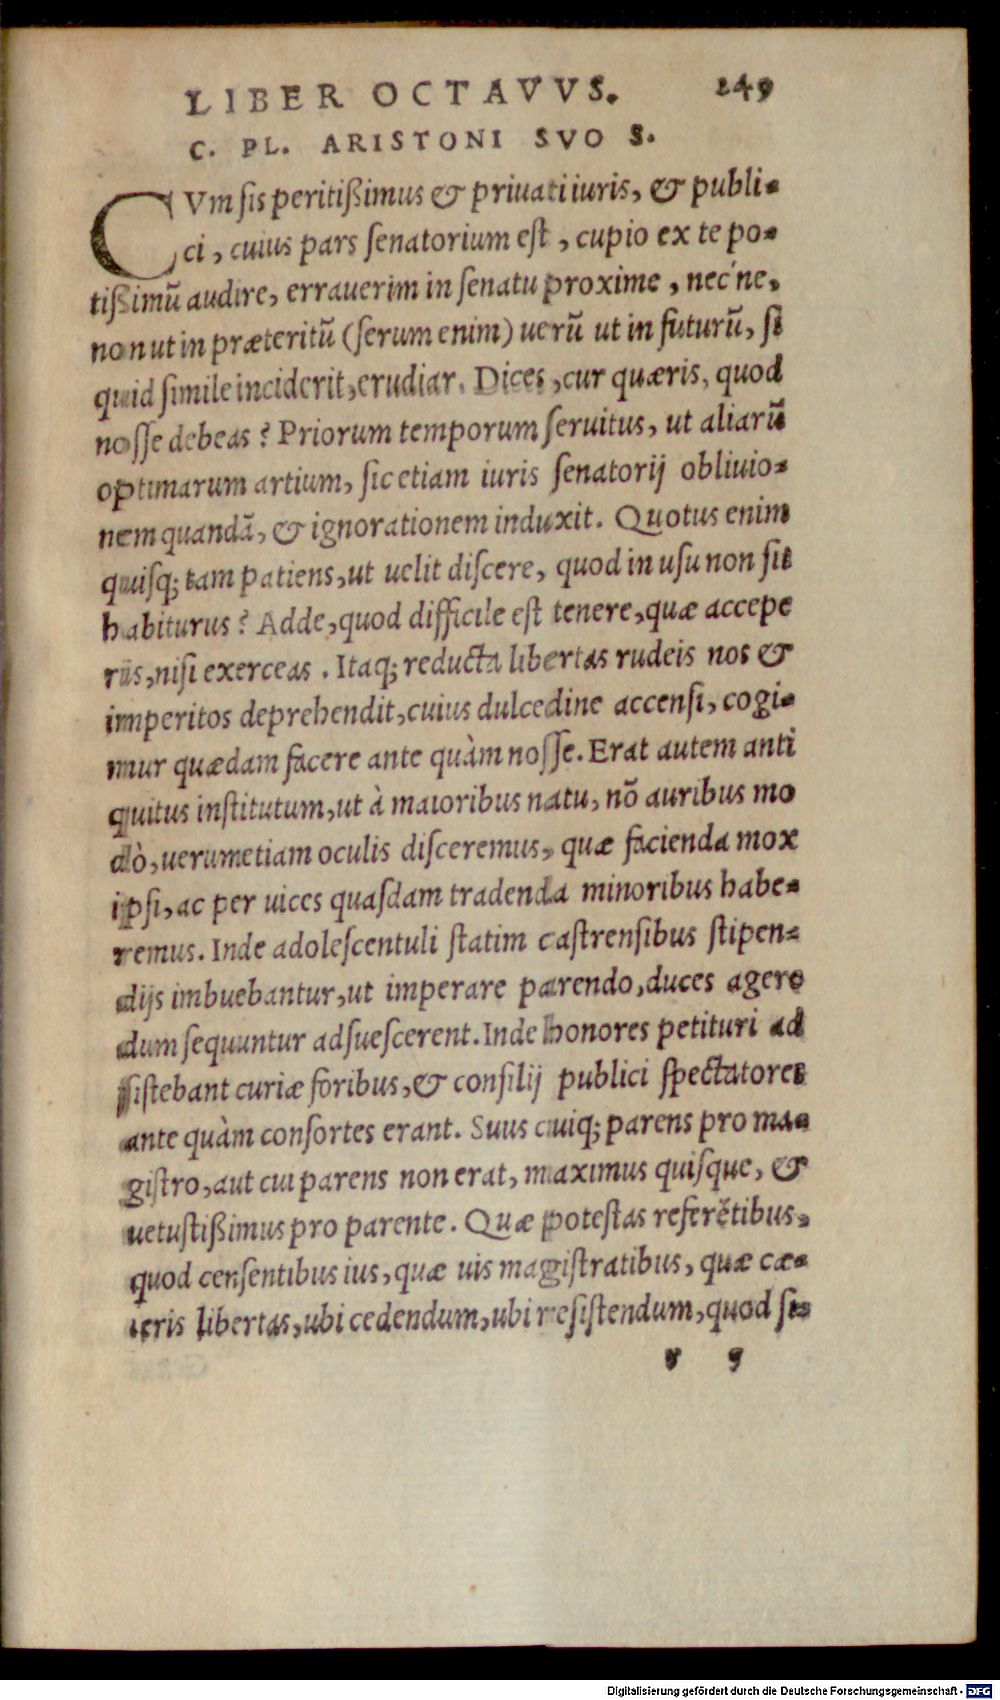 LIBER OCTAVVS. 249
C. PL. ARISTONI SVO S.
CVm sis peritißimus & priuati iuris, & publi-
ci, cuius pars senatorium est, cupio ex te po-
tißimũ audire, errauerim in senatu proxime, nec ́ne,
non ut in præteritũ (serum enim) uerũ ut in futurũ, si
quid simile inciderit, erudiar. Dices, cur quæris, quod
nosse debeas? Priorum temporum seruitus, ut aliarũ
optimarum artium, sic etiam iuris senatorij obliuio-
nem quandã, & ignorationem induxit. Quotus enim
quisq; tam patiens, ut uelit discere, quod in usu non sit
habiturus? Adde, quod difficile est tenere, quæ accepe
riis, nisi exerceas. Itaq; reducta libertas rudeis nos &
imperitos deprehendit, cuius dulcedine accensi, cogi-
mur quædam facere ante quàm nosse. Erat autem anti
quitus institutum, ut à maioribus natu, nõ auribus mo
dò, uerumetiam oculis disceremus, quæ facienda mox
ipsi, ac per uices quasdam tradenda minoribus habe-
remus. Inde adolescentuli statim castrensibus stipen-
dijs imbuebantur, ut imperare parendo, duces agere
dum sequuntur adsuescerent. Inde honores petituri ad
sistebant curiæ foribus, & consilij publici spectatores
ante quàm consortes erant. Suus cuiq; parens pro ma-
gistro, aut cui parens non erat, maximus quisque, &
uetustißimus pro parente. Quæ potestas referẽtibus,
quod censentibus ius, quæ uis magistratibus, quæ cæ-
teris libertas, ubi cedendum, ubi resistendum, quod si-
r 5
Digitalisierung gefördert durch die Deutsche Forschungsgemeinschaft - DFG